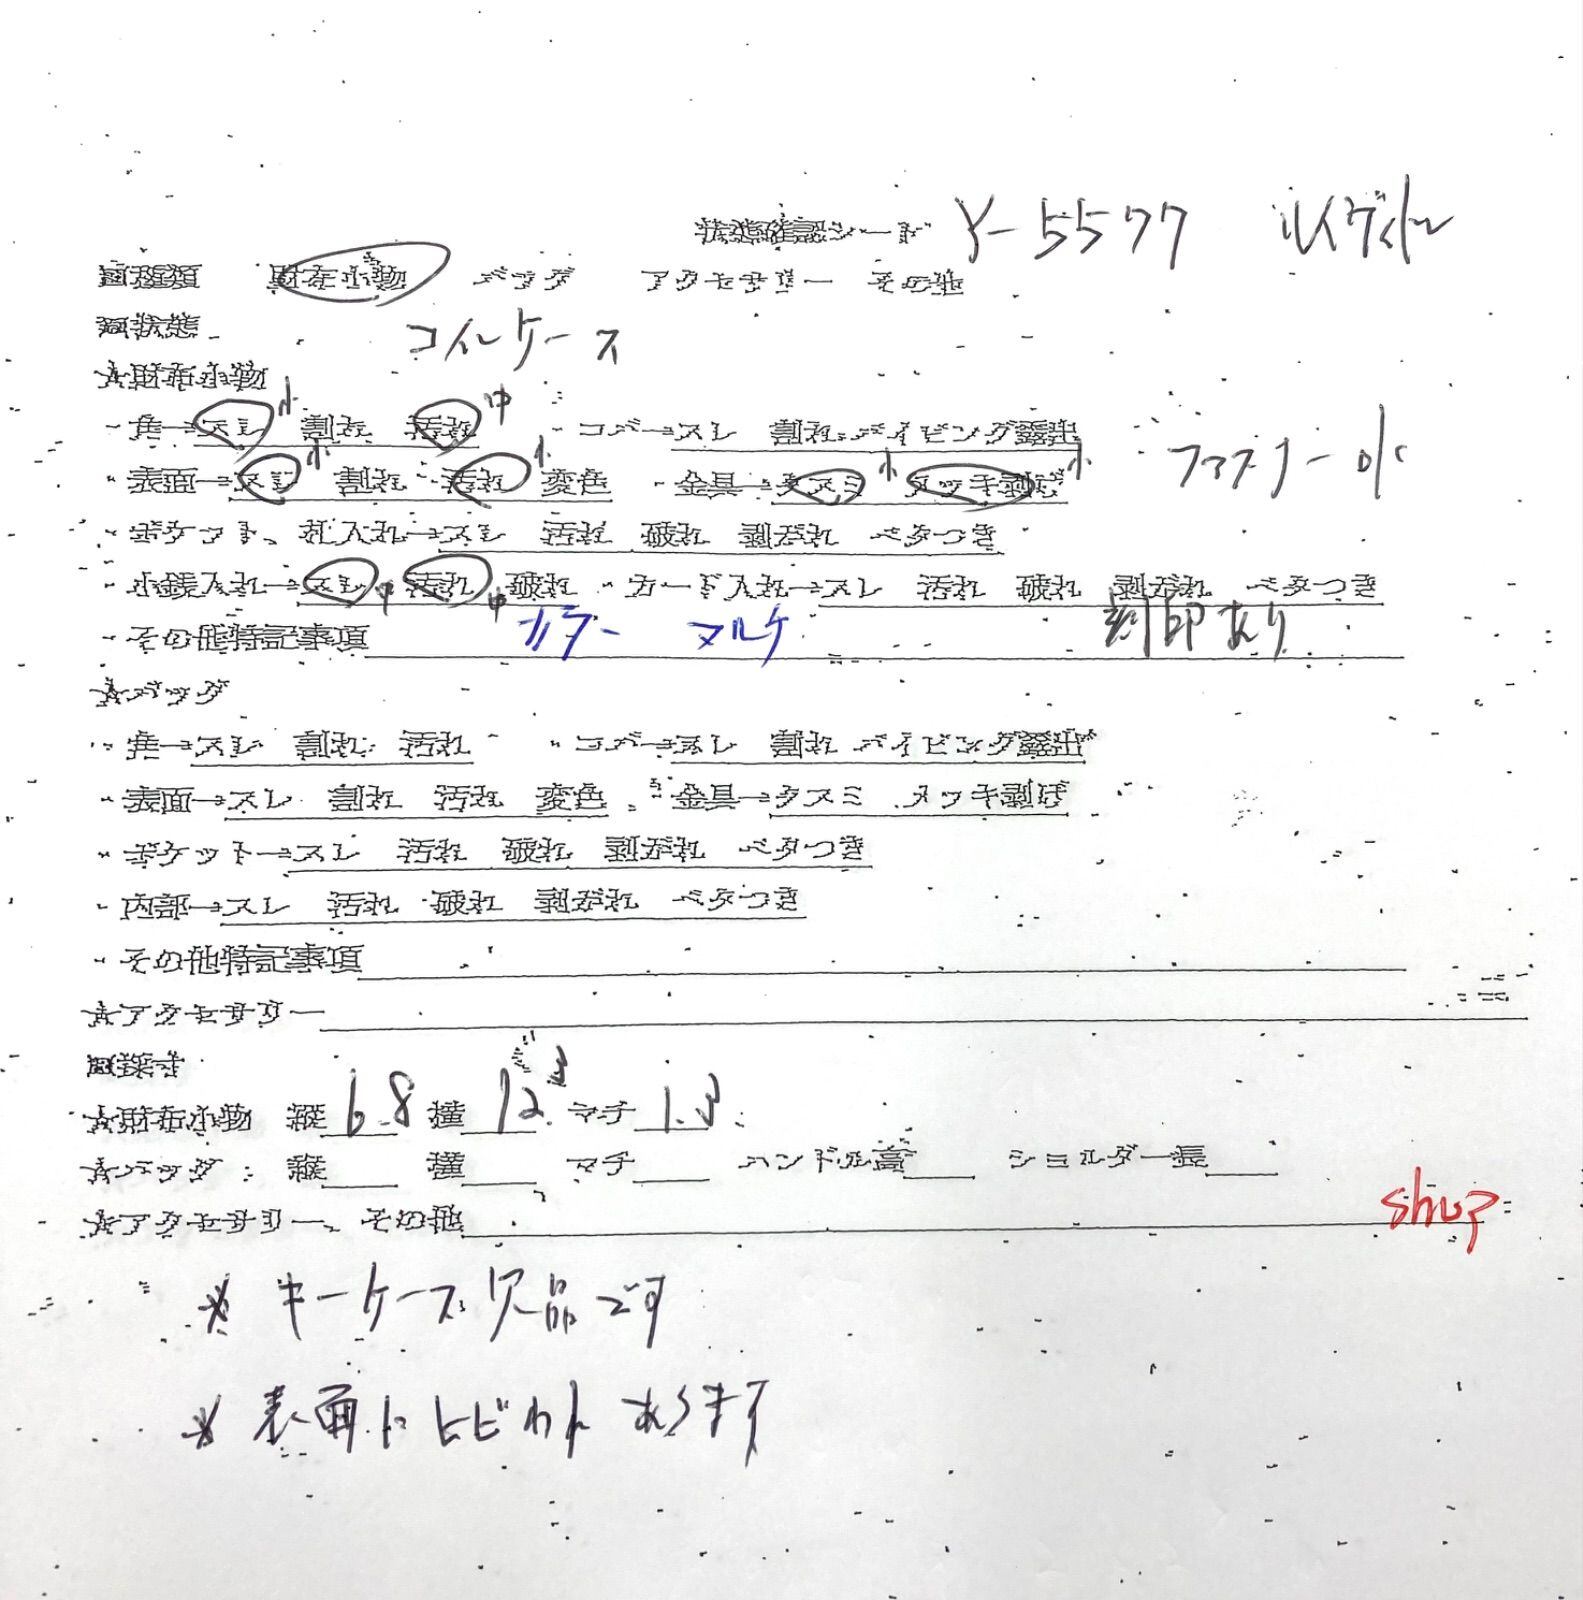 状態確認シート Y-5577 ルイヴィトン
□種類 財布小物 バッグ アクセサリー その他
□状態 コインケース
☆財布小物
・角→スレ 小 割れ 汚れ 中 ・コバ→スレ 割れ パイピング露出
・表面→スレ 小 割れ 汚れ 小 変色 ・金具→クスミ 小 メッキ剥げ 小 ファスナー 小
・ポケット、札入れ→スレ 汚れ 破れ 剥がれ ベタつき
・小銭入れ→スレ 中 汚れ 中 破れ ・カード入れ→スレ 汚れ 破れ 剥がれ ベタつき
・その他特記事項 カラー マルケ 刻印あり
☆バッグ
・角→スレ 割れ 汚れ ・コバ→スレ 割れ パイピング露出
・表面→スレ 割れ 汚れ 変色 ・金具→クスミ メッキ剥げ
・ポケット→スレ 汚れ 破れ 剥がれ ベタつき
・内部→スレ 汚れ 破れ 剥がれ ベタつき
・その他特記事項
☆アクセサリー
□採寸
☆財布小物 縦 6.8 横 12. マチ 1.3
☆バッグ 縦 横 マチ ハンドル高 ショルダー長
☆アクセサリー、その他 shop
※ キーケース欠品です
※ 表面にヒビわれあります